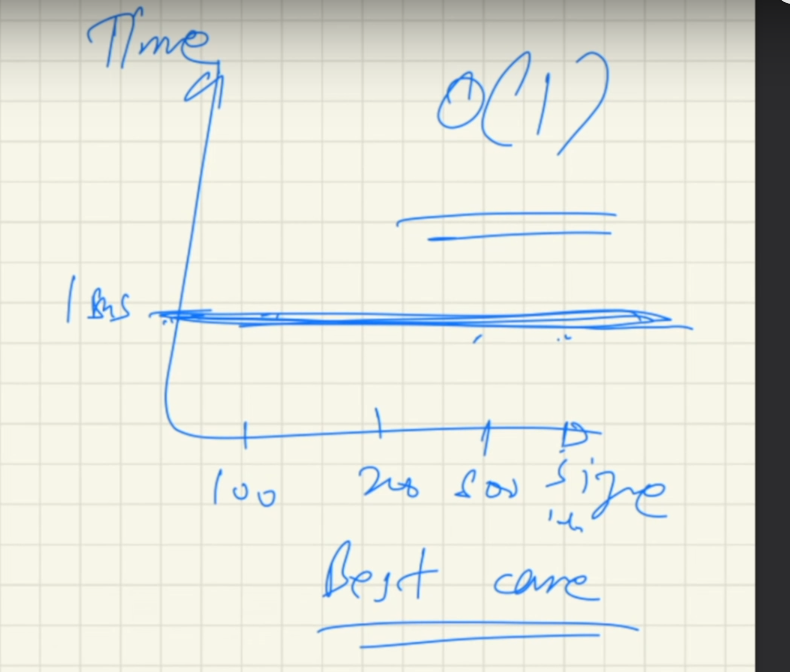 Time
O(1)
1 ms
100 200 500 size
Best case